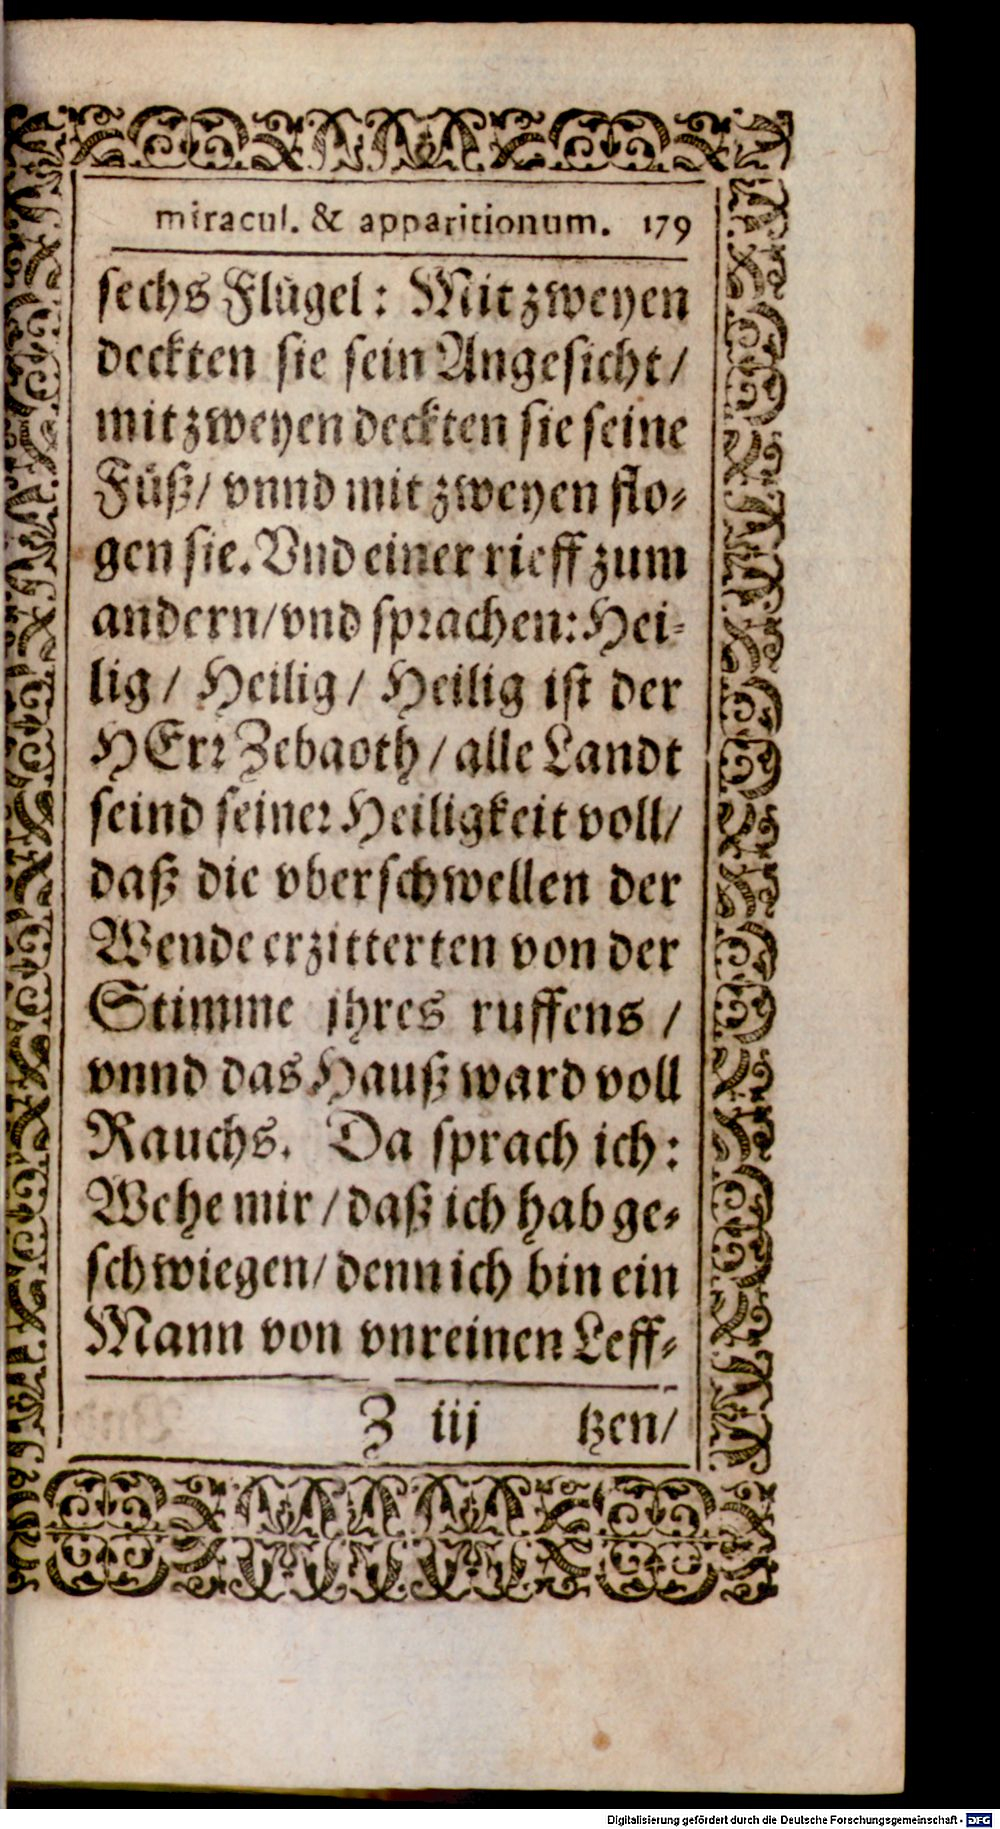 miracul. & apparitionum. 179
sechs Flügel: Mit zweyen
deckten sie sein Angesicht/
mit zweyen deckten sie seine
Füß/ vnnd mit zweyen flo-
gen sie. Vnd einer rieff zum
andern/ vnd sprachen: Hei-
lig/ Heilig/ Heilig ist der
HErr Zebaoth/ alle Landt
seind seiner Heiligkeit voll/
daß die vberschwellen der
Wende erzitterten von der
Stimme jhres ruffens/
vnnd das Hauß ward voll
Rauchs. Da sprach ich:
Wehe mir/ daß ich hab ge-
schwiegen/ denn ich bin ein
Mann von vnreinen Leff-
Z iij tzen/
Digitalisierung gefördert durch die Deutsche Forschungsgemeinschaft - DFG